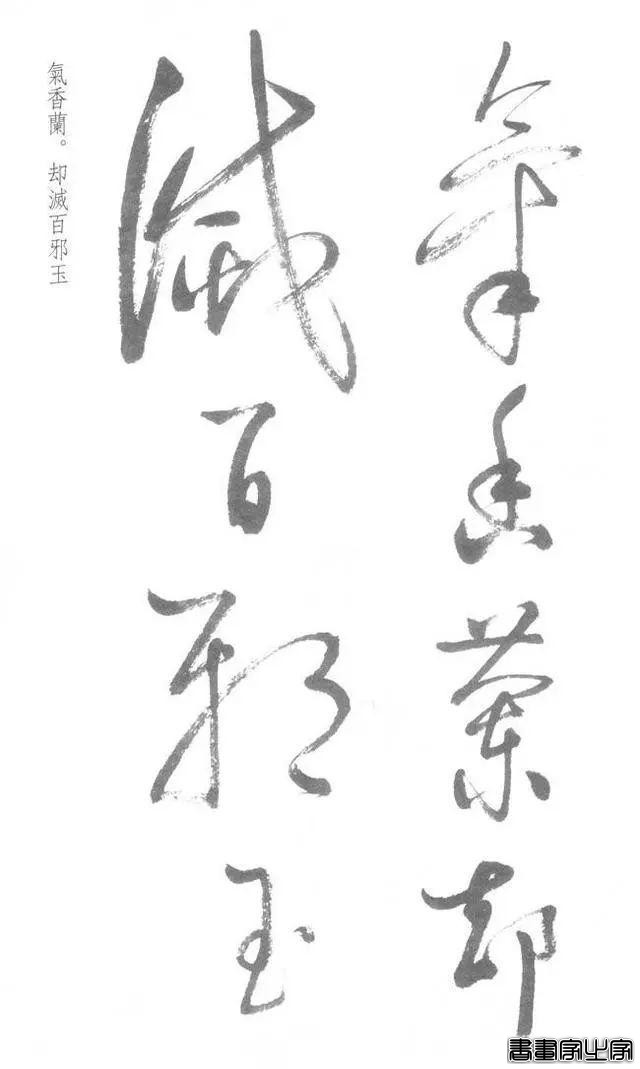 氣香蘭却
滅百邪玉
氣香蘭。却滅百邪玉
書畫家之家